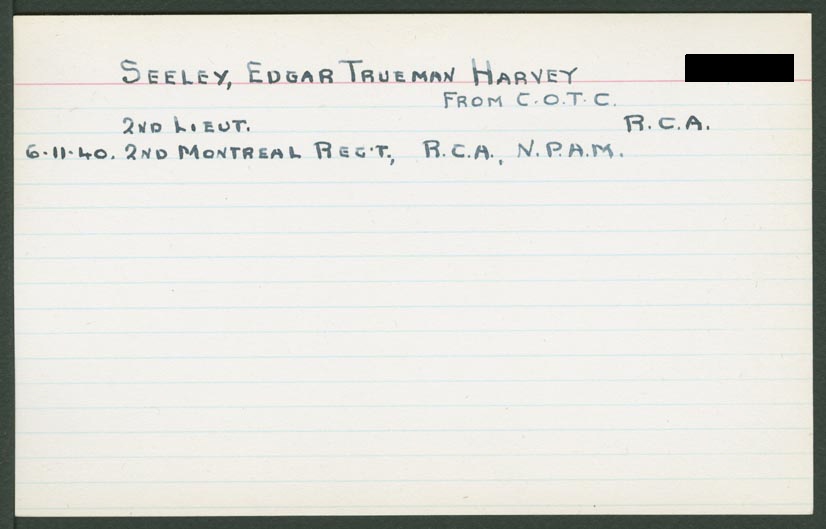 SEELEY, EDGAR TRUEMAN HARVEY
FROM C.O.T.C.
2ND LIEUT. R.C.A.
6-11-40. 2ND MONTREAL REG'T., R.C.A., N.P.A.M.